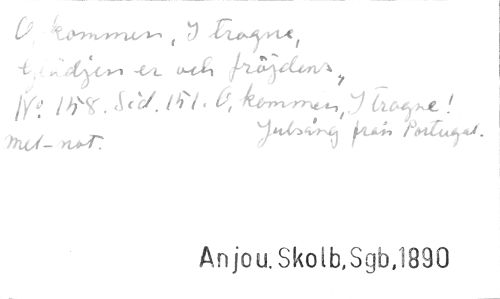 O, kommen, I trogne,
Glädjen er och fröjdens,
No. 158. Sid. 151. O, kommen, I trogne!
Julsång från Portugal.
mel-not.
Anjou. Skolb, Sgb, 1890